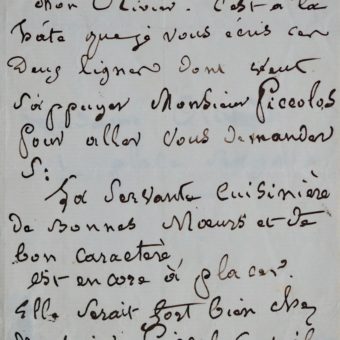 mon Olivier. C'est à la
hâte que je vous écris ces
Deux lignes dont veut
s'appuyer Monsieur Piccolos
pour aller vous demander
Si
La Servante Cuisinière
de Bonnes Mœurs et de
bon caractère,
est encore à placer.
Elle serait fort bien chez